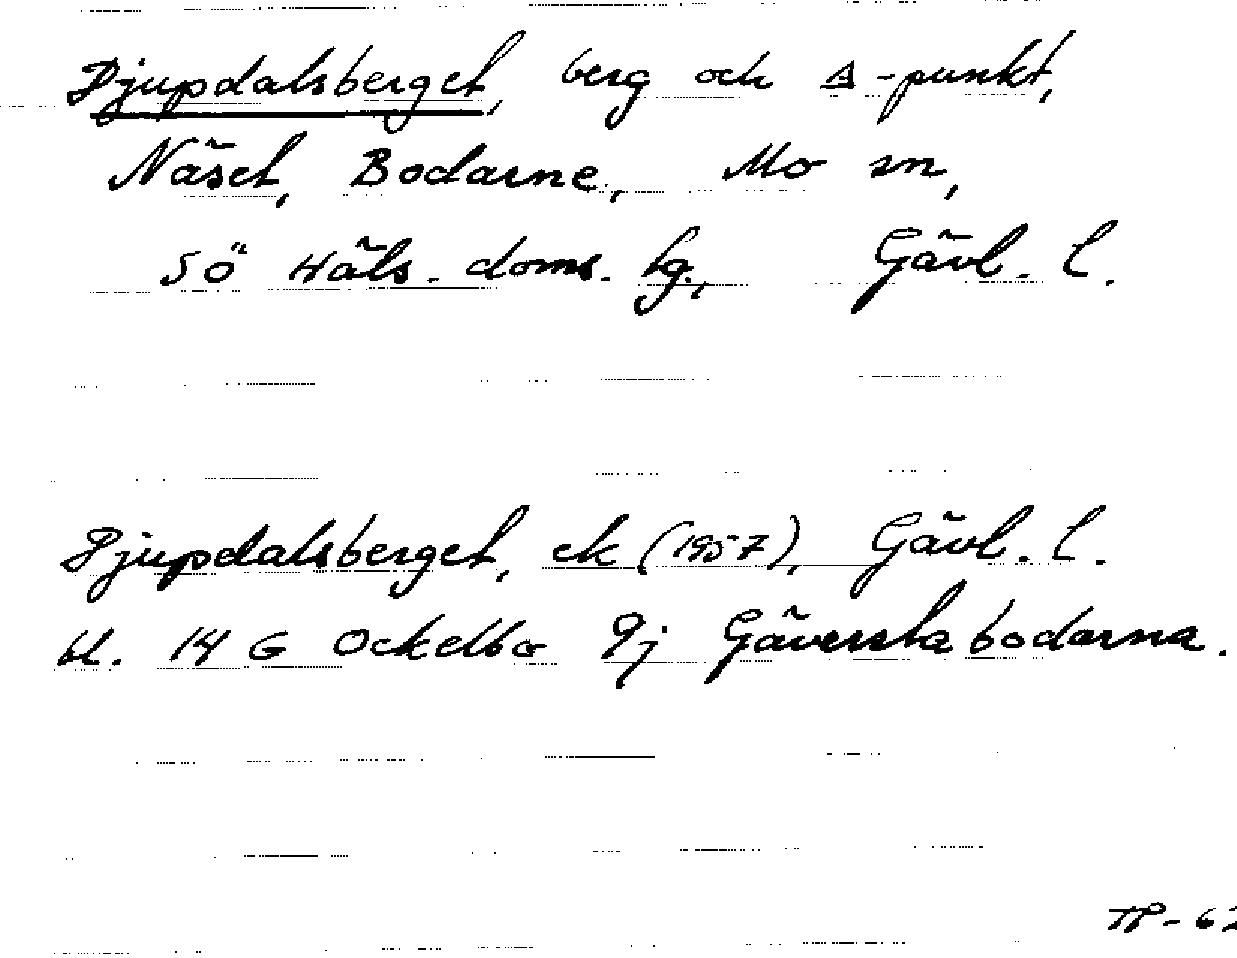 Djupdalsberget, berg och △-punkt,
Näset, Bodarne, Mo sn,
SÖ Häls. doms. fg., Gävl. l.
Djupdalsberget, ek (1957), Gävl. l.
bl. 14 G Ockelbo 9j Gäverstabodarna.
TP-62